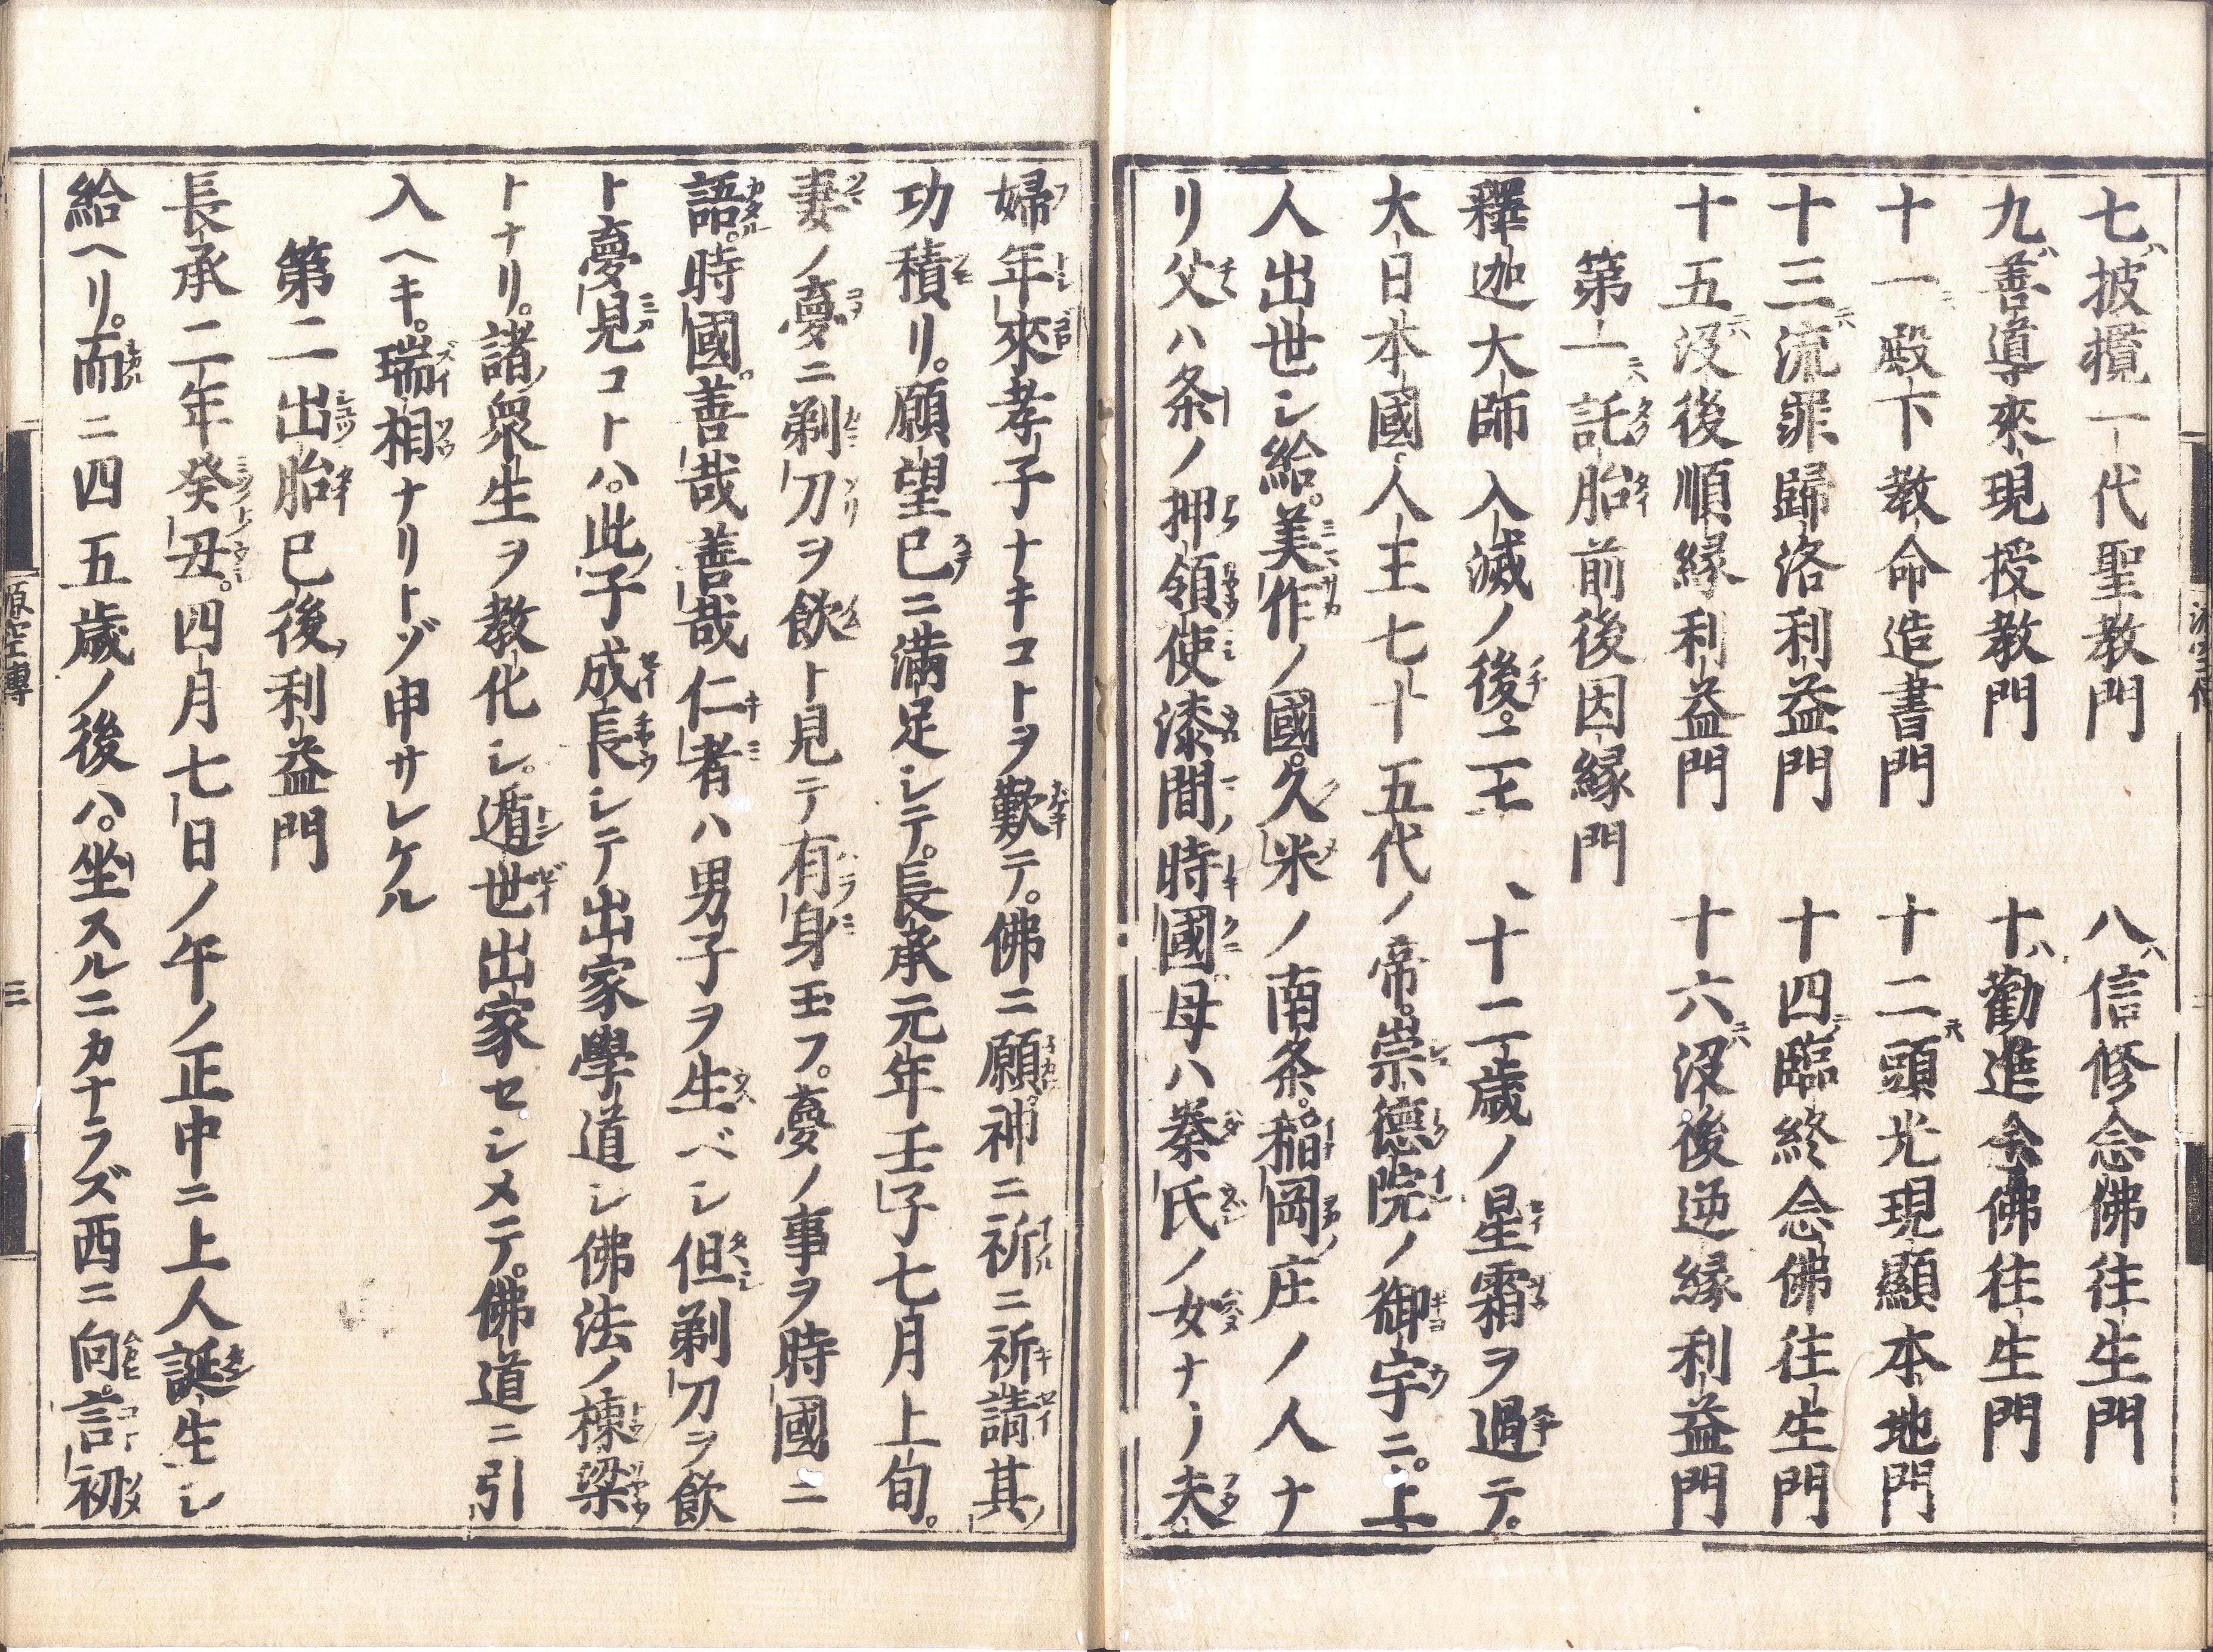 七披攬一代聖教門　八信修念佛往生門
九善導來現授教門　十勸進念佛往生門
十一殿下教命造書門　十二頭光現顯本地門
十三流罪歸洛利益門　十四臨終念佛往生門
十五没後順縁利益門　十六没後逆縁利益門
第一託胎前後因縁門
釋迦大師入滅ノ後。二千、十二歳ノ星霜ヲ過テ。
大日本國。人王七十五代ノ帝。崇德院ノ御宇ニ。上
人出世シ給。美作ノ國。久米ノ南条。稲岡庄ノ人ナ
リ父ハ条ノ押領使漆間時國母ハ秦氏ノ女ナリ夫
婦年來孝子ナキコトヲ歎テ。佛ニ願神ニ祈ニ祈請其
功積リ。願望已ニ満足シテ。長承元年壬子七月上旬。
妻ノ夢ニ剃刀ヲ飲ト見テ有身玉フ。夢ノ事ヲ時國ニ
語。時國。善哉善哉仁者ハ男子ヲ生ベシ但剃刀ヲ飲
ト夢見コトハ。此子成長シテ出家學道シ佛法ノ棟梁
トナリ。諸衆生ヲ教化シ。遁世出家セシメテ。佛道ニ引
入ヘキ。瑞相ナリトゾ申サレケル
第二出胎已後利益門
長承二年癸丑。四月七日ノ午ノ正中ニ上人誕生シ
給ヘリ。而ニ四五歳ノ後ハ。坐スルニカナラズ西ニ向。言初
源空傳
三